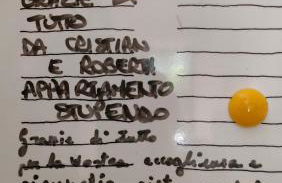 GRAZIE DI
TUTTO
DA CRISTIAN
E ROBERTA
APPARTAMENTO
STUPENDO
Grazie di tutto
per la vostra accoglienza e